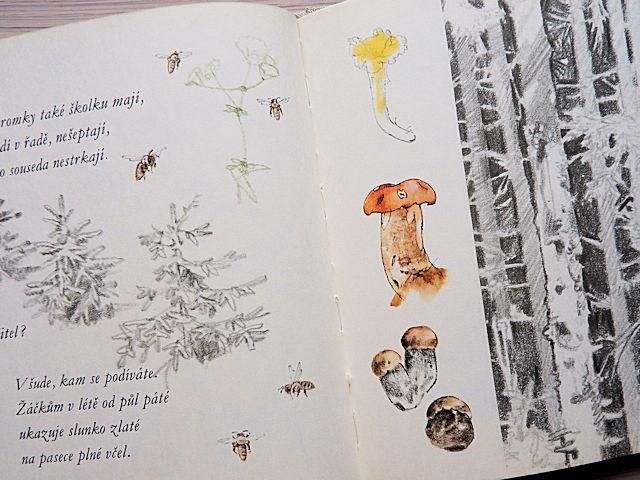 romky také školku mají,
dí v řadě, nešeptají,
o souseda nestrkají.
itel?
Všude, kam se podíváte.
Žáčkům v létě od půl páté
ukazuje slunko zlaté
na pasece plné včel.